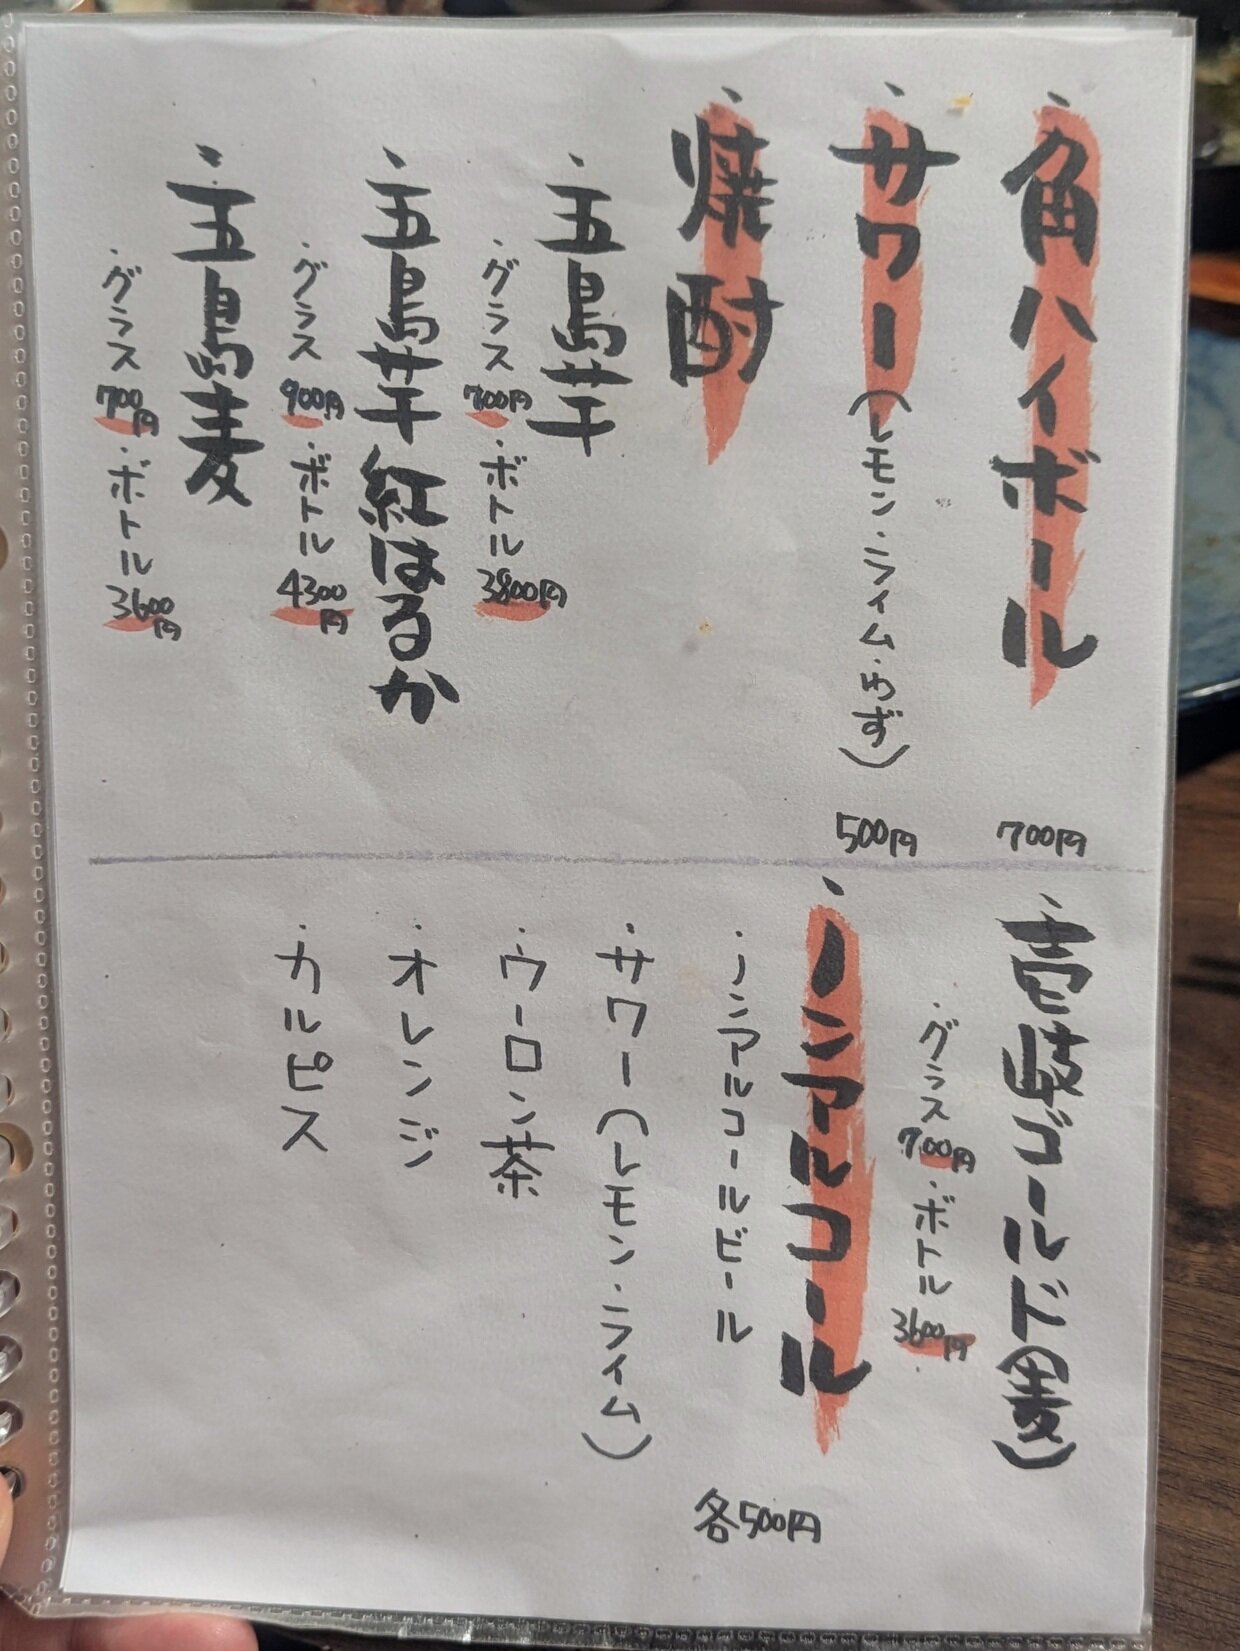 ・角ハイボール 700円
・サワー(レモン・ライム・ゆず) 500円
・焼酎
・五島芋
・グラス 700円 ・ボトル 3800円
・五島芋 紅はるか
・グラス 900円 ・ボトル 4300円
・五島麦
・グラス 700円 ・ボトル 3600円
・壱岐ゴールド(麦)
・グラス 700円 ・ボトル 3600円
・ノンアルコール
・ノンアルコールビール
・サワー(レモン・ライム)
・ウーロン茶
・オレンジ
・カルピス
各500円